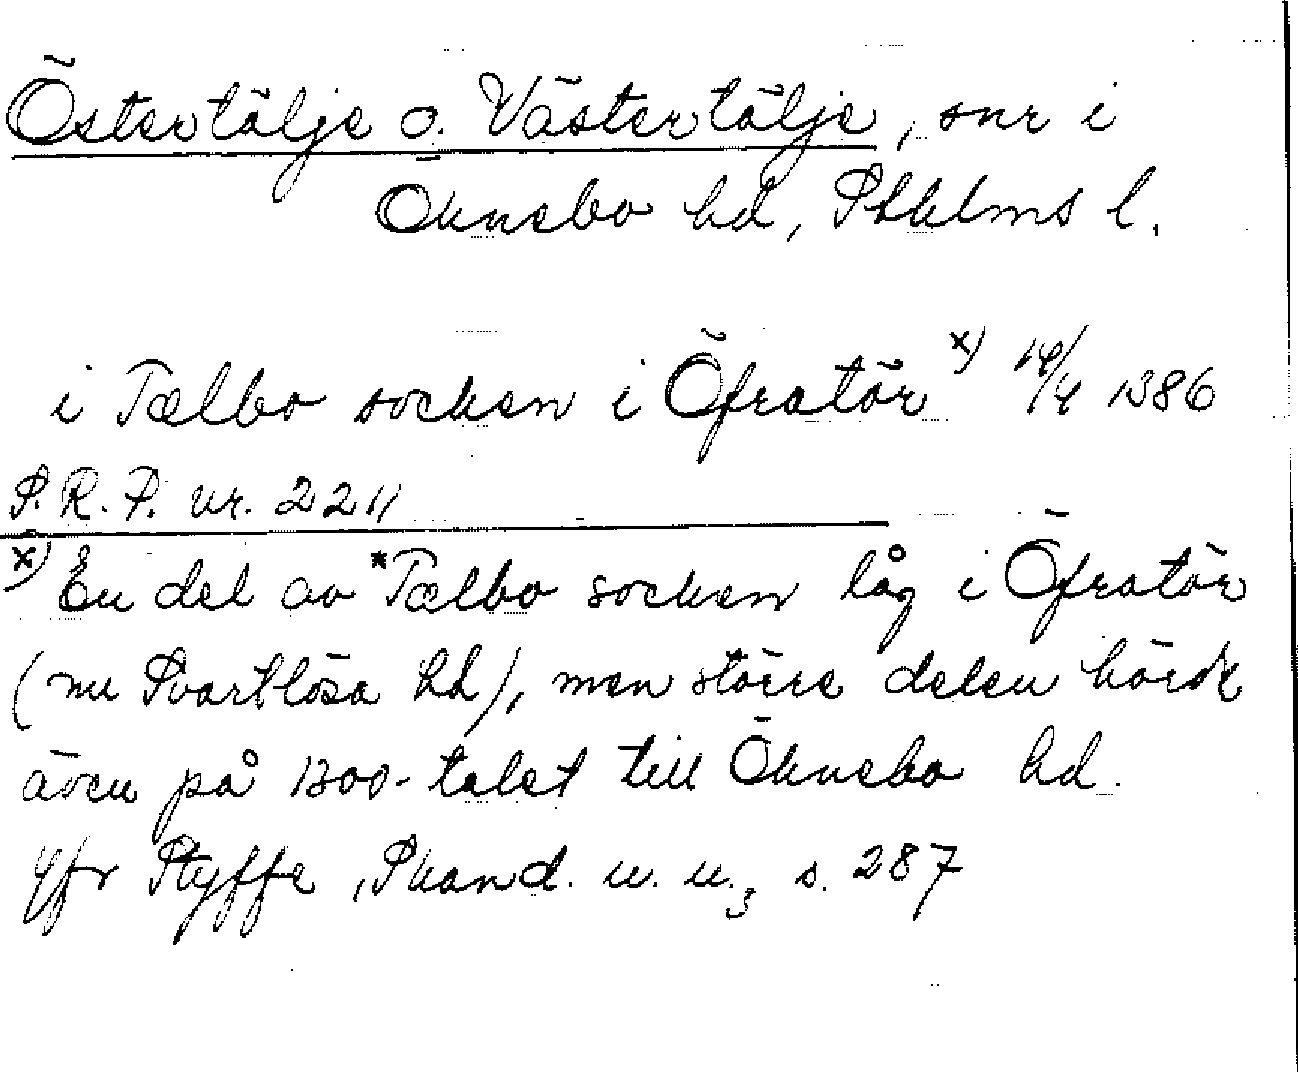 Östertälje o. Västertälje, snr i
Öknebo hd, Sthlms l.
i Tælbo socken i Öfratör x) 14/4 1386
S.R.P. nr. 2211
x) En del av *Tælbo socken låg i Öfratör
(nu Svartlösa hd), men större delen hörde
även på 1300-talet till Öknebo hd.
Jfr Styffe, Skand. u. u.3 s. 287